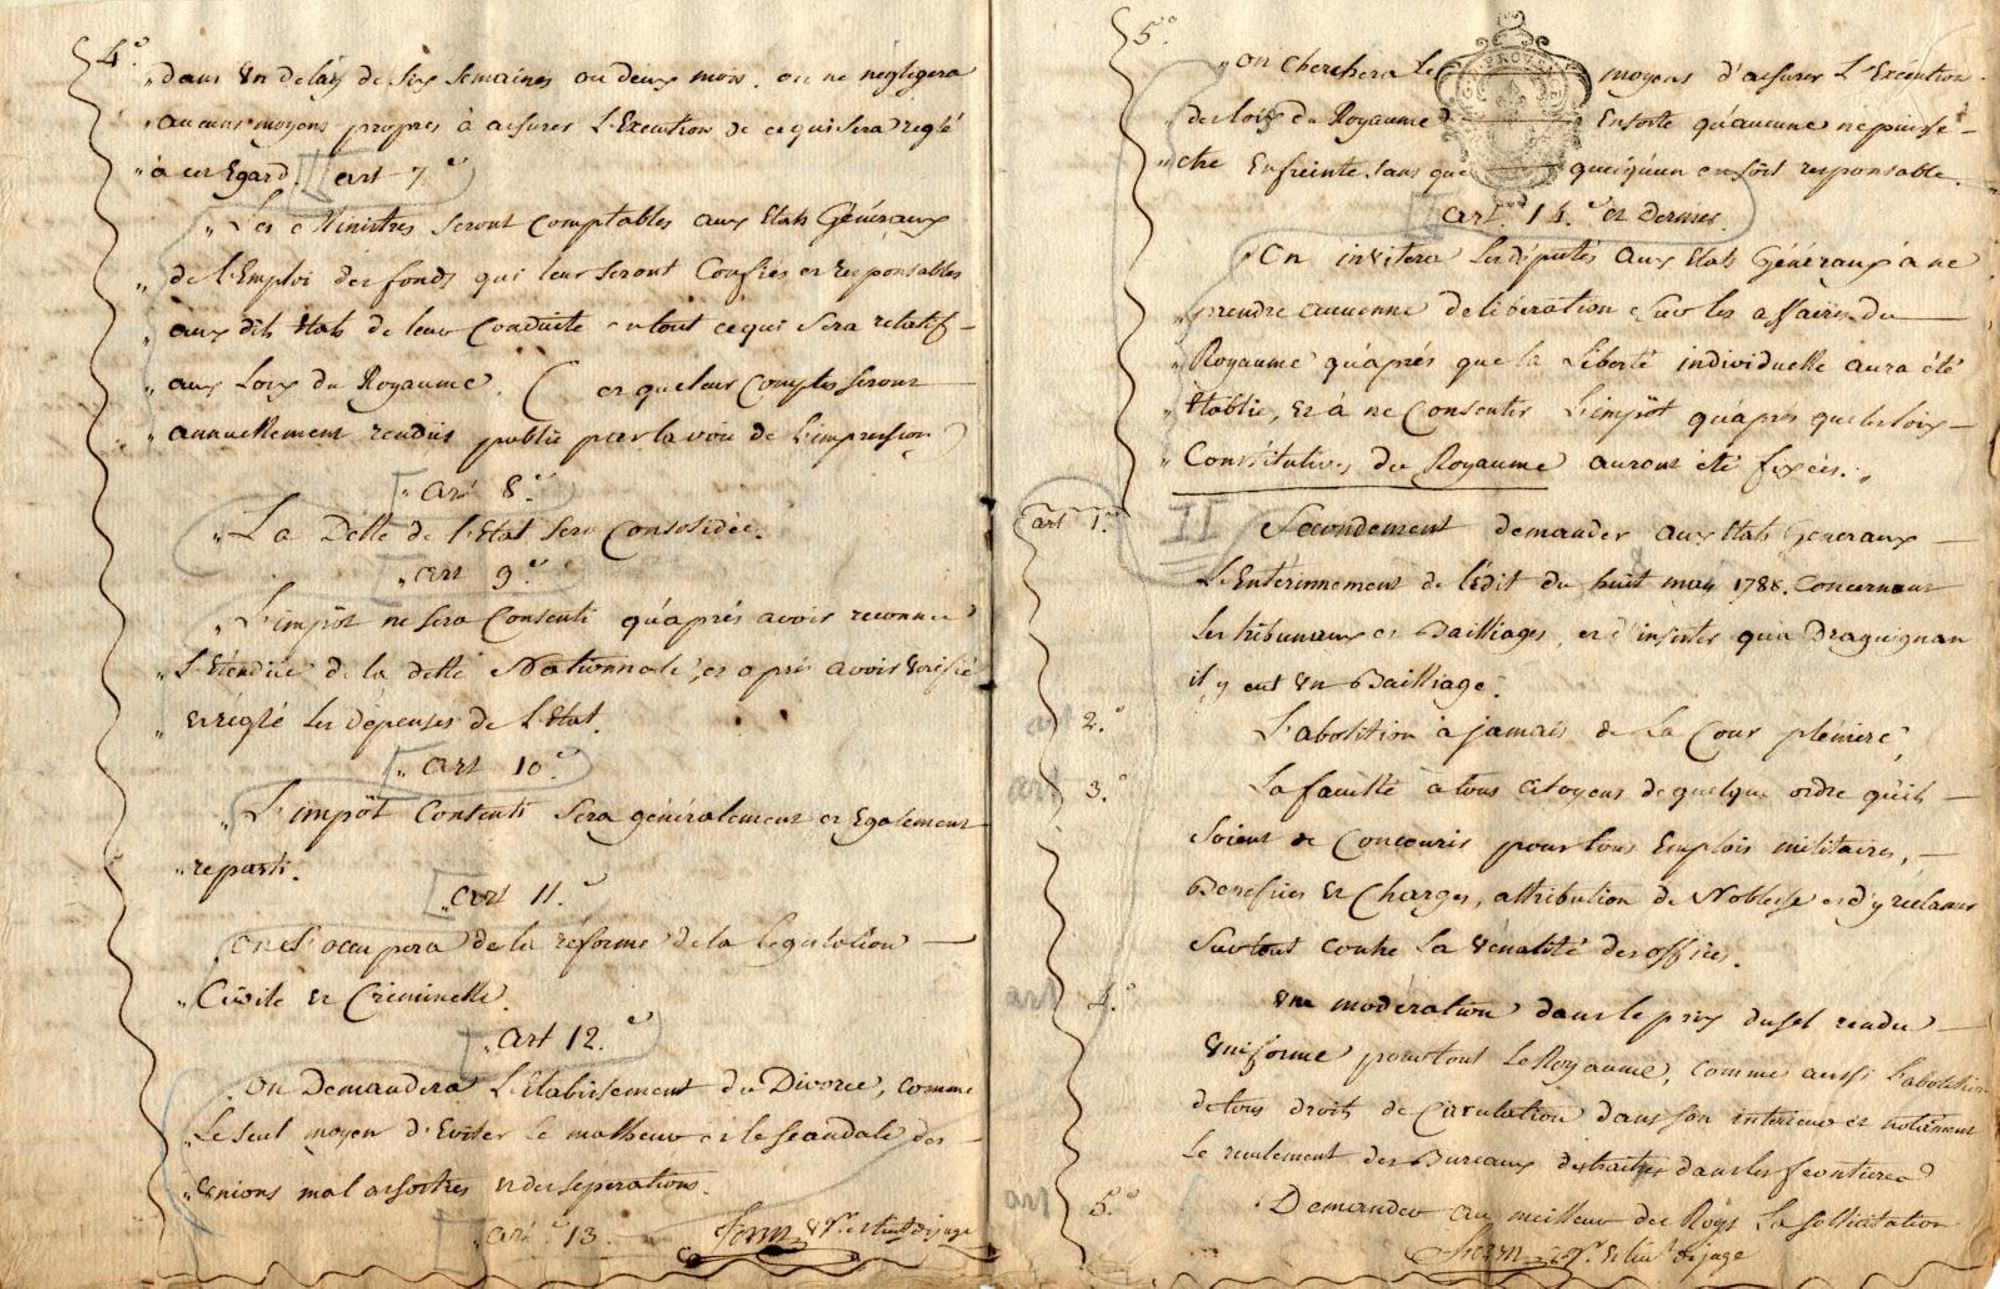 4.°
„ dans un delay de six semaines ou deux mois. on ne negligera
„ aucuns moyens propres à assurer L'Execution de ce qui sera reglé
„ à cet Egard. art 7.e
„ Les Ministres seront comptables aux Etats Généraux
„ de l'Emploi des fonds qui leur seront Confiés et responsables
„ aux dits Etats de leur Conduite en tout ce qui sera relatif
„ aux Loix du Royaume. ( et que leur Comptes seront
„ annuellement rendüs public par la voie de L'impression )
„ art 8.e
„ La Dette de l'Etat sera Consolidée.
„ art 9.e
„ L'impôt ne sera Consenti qu'aprés avoir reconnu
„ L'Etendüe de la dette Nationnale, et aprés avoir verifié
„ et réglé les dépenses de L'Etat.
„ art 10.e
„ L'impôt Consenti sera généralement et Egalement
„ reparti.
„ art 11.e
on s'occupera de la réforme de la legislation
„ Civile et Criminelle.
„ art 12.e
„ on Demandera L'Etablissement du Divorce, comme
„ Le seul moyen d'Eviter le malheur et le scandale des
„ unions mal assorties et des séperations.
„ art.e 13.
5.°
„ on cherchera Les moyens d'assurer L'Exécution
„ des loix du Royaume Ensorte qu'aucune ne puisse
„ etre Enfreinte sans que quelqu'un en soit responsable.
art. 14.e et dernier.
„ On invitera Les députés aux Etats Généraux à ne
„ prendre aucunne deliberation sur les affaires du
„ Royaume qu'aprés que la Liberté individuelle aura été
„ Etablie, et à ne Consentir L'impôt qu'aprés que les loix
„ Constitutives du Royaume auront été fixées. „
art 1.er II Secondement demander aux Etats Generaux
L'Enterinnement de l'édit du huit may 1788. Concernant
Les tribunaux et Bailliages, et d'insister qu'a Draguignan
il y eut un Bailliage.
2.° L'abolition à jamais de La Cour pléniere,
3.° La faculté à tous citoyens de quelque ordre qu'ils
Soient de Concourir pour tous Emplois militaires,
Benefices et Charges, attribution de Noblesse et d'y réclamer
surtout contre La vénalité des offices.
4.° une modération dans le prix du sel rendu
uniforme pour tout Le Royaume, comme aussi L'abolition
de tous droits de Circulation dans son interieur et notament
Le reculement des Bureaux des traites dans les frontieres
5.° Demander au meilleur des Roys La sollicitation